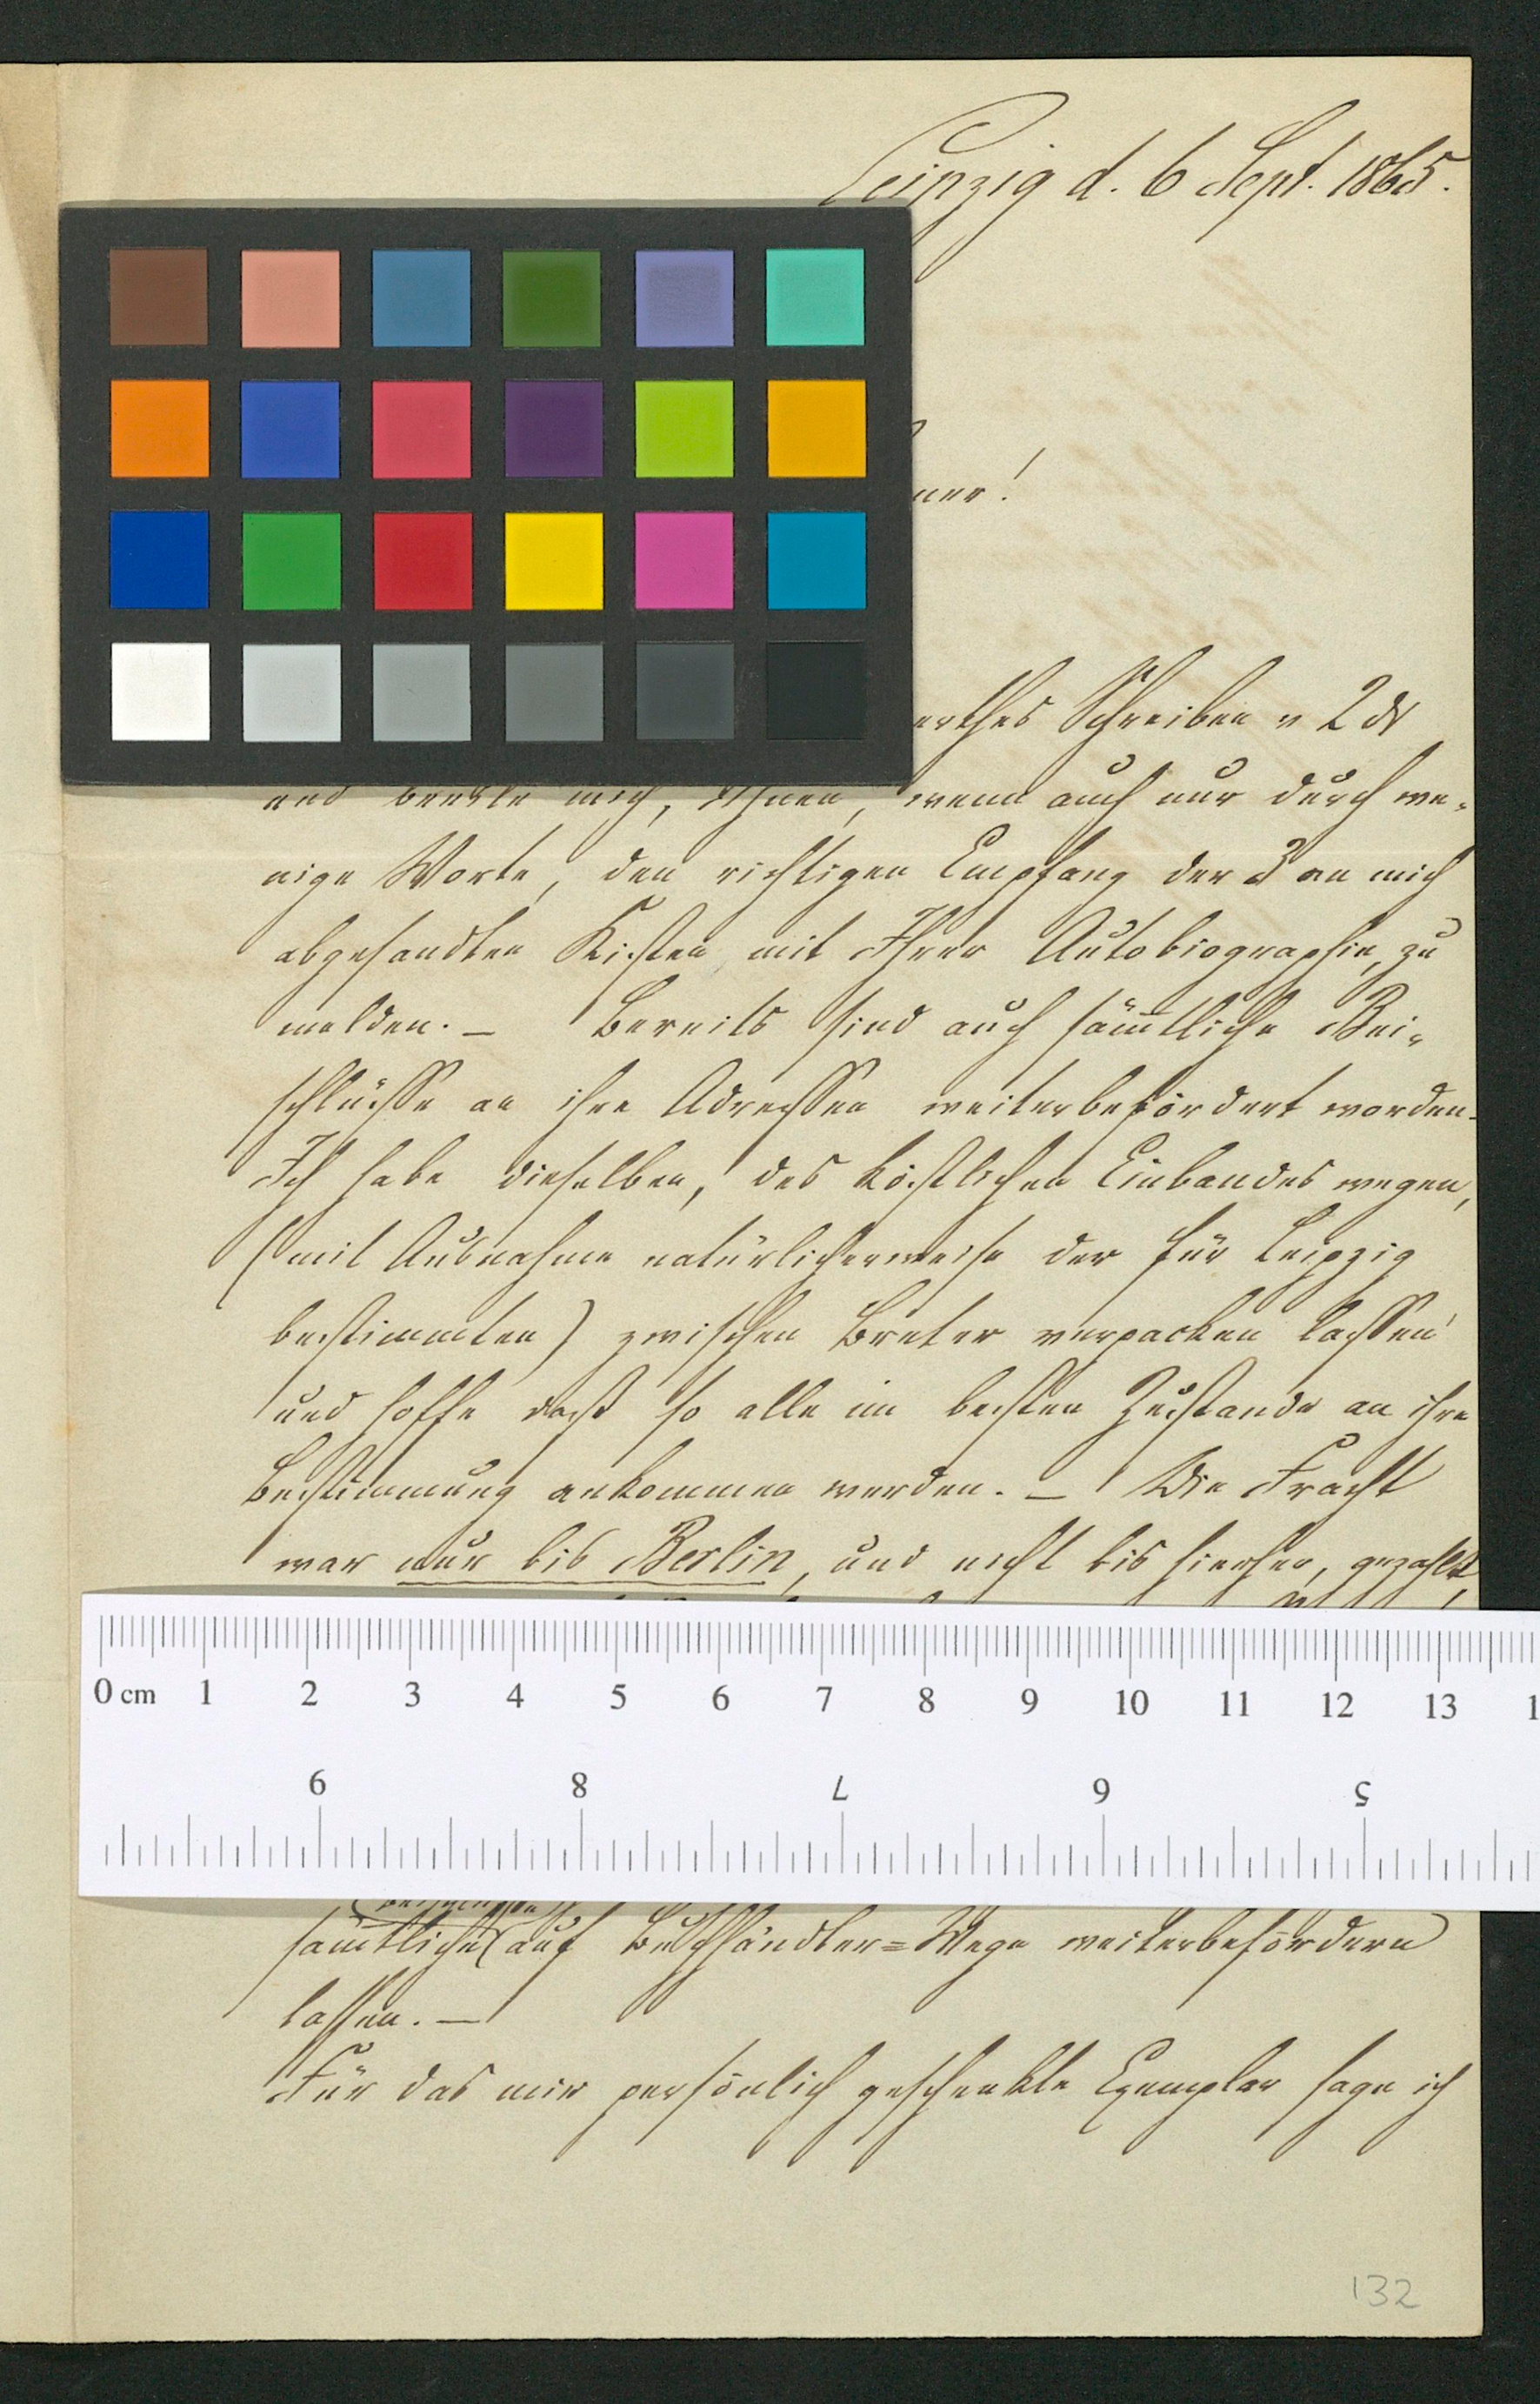 Leipzig d. 6 Sept. 1865.
ner!
erthes Schreiben v 2 ds
und beeile mich, Ihnen, wenn auch nur durch we-
nige Worte, den richtigen Empfang der 3 an mich
abgesandten Kisten mit Ihrer Autobiographie, zu
melden. – Bereits sind auch säm̄tliche Bei-
schlüsse an ihre Adressen weiterbefördert worden.
Ich habe dieselben, des köstlichen Einbandes wegen,
(mit Ausnahme natürlicherweise der für Leipzig
bestimmten) zwischen Breter verpacken lassen
und hoffe daß so alle im besten Zustande an ihre
Bestimmung ankommen werden. – Die Fracht
war nur bis Berlin, und nicht bis hierher, gezahlt,
0 cm 1 2 3 4 5 6 7 8 9 10 11 12 13 1
9 8 7 6 5
säm̄tliche auf Buchhändler=Wege weiterbefördern
lassen. –
Für das mir persönlich geschenkte Exemplar sage ich
132